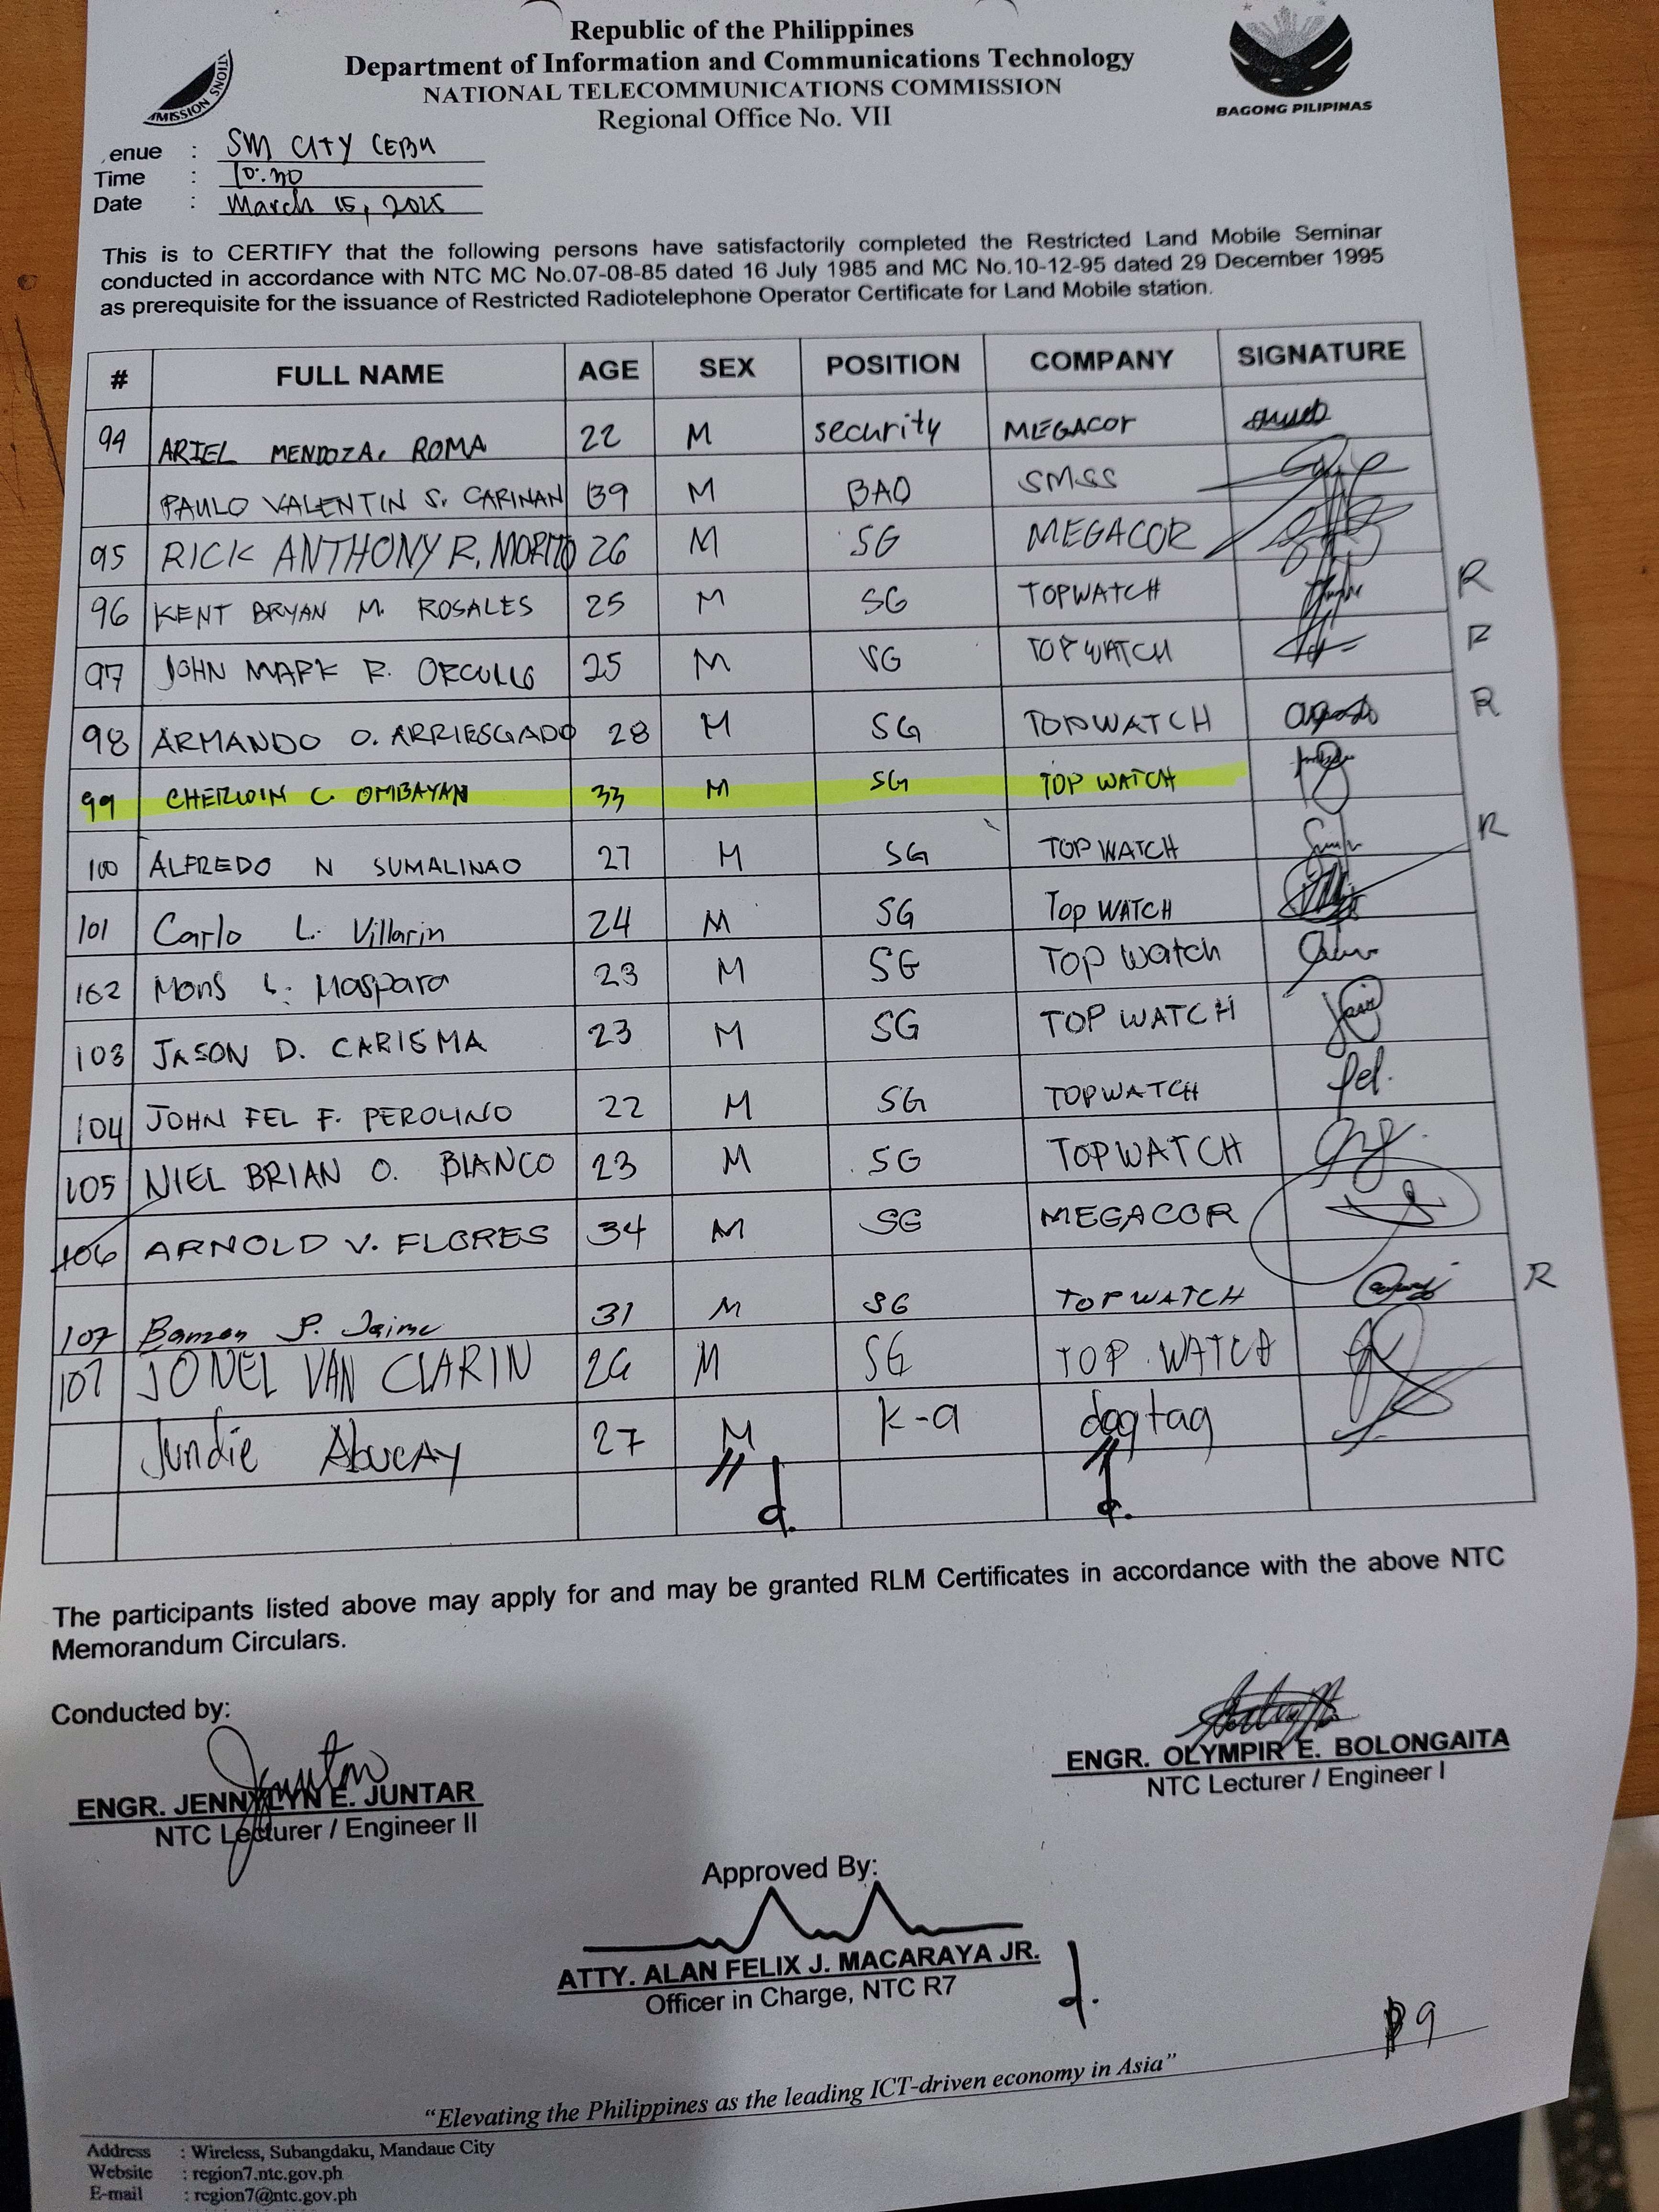 Republic of the Philippines
Department of Information and Communications Technology
NATIONAL TELECOMMUNICATIONS COMMISSION
Regional Office No. VII
MISSION
ATIONS
BAGONG PILIPINAS
enue : SM CITY CEBU
Time : 10:30
Date : March 15, 2025
This is to CERTIFY that the following persons have satisfactorily completed the Restricted Land Mobile Seminar
conducted in accordance with NTC MC No.07-08-85 dated 16 July 1985 and MC No.10-12-95 dated 29 December 1995
as prerequisite for the issuance of Restricted Radiotelephone Operator Certificate for Land Mobile station.
# FULL NAME AGE SEX POSITION COMPANY SIGNATURE
94 ARIEL MENDOZA, ROMA 22 M security MEGACOR
PAULO VALENTIN S. CARINAN 39 M BAO SMSS
95 RICK ANTHONY R. MORITO 26 M SG MEGACOR
96 KENT BRYAN M. ROSALES 25 M SG TOPWATCH R
97 JOHN MARK R. ORCULLO 25 M VG TOPWATCH R
98 ARMANDO O. ARRIESGADO 28 M SG TOPWATCH R
99 CHERWIN C. OMBAYAN 33 M SG TOP WATCH
100 ALFREDO N SUMALINAO 27 M SG TOP WATCH R
101 Carlo L. Villarin 24 M SG Top WATCH
102 Mons L. Maspara 23 M SG TOP Watch
103 JASON D. CARISMA 23 M SG TOP WATCH
104 JOHN FEL F. PEROLINO 22 M SG TOPWATCH fel.
105 NIEL BRIAN O. BIANCO 23 M SG TOPWATCH
106 ARNOLD V. FLORES 34 M SG MEGACOR
107 Banzon P. Jaime 31 M SG TOPWATCH R
107 JONEL VAN CLARIN 26 M SG TOP WATCH
Jundie Abucay 27 M K-9 dogtag
The participants listed above may apply for and may be granted RLM Certificates in accordance with the above NTC
Memorandum Circulars.
Conducted by:
ENGR. JENNYLYN E. JUNTAR
NTC Lecturer / Engineer II
ENGR. OLYMPIR E. BOLONGAITA
NTC Lecturer / Engineer I
Approved By:
ATTY. ALAN FELIX J. MACARAYA JR.
Officer in Charge, NTC R7
P9
“Elevating the Philippines as the leading ICT-driven economy in Asia”
Address : Wireless, Subangdaku, Mandaue City
Website : region7.ntc.gov.ph
E-mail : region7@ntc.gov.ph